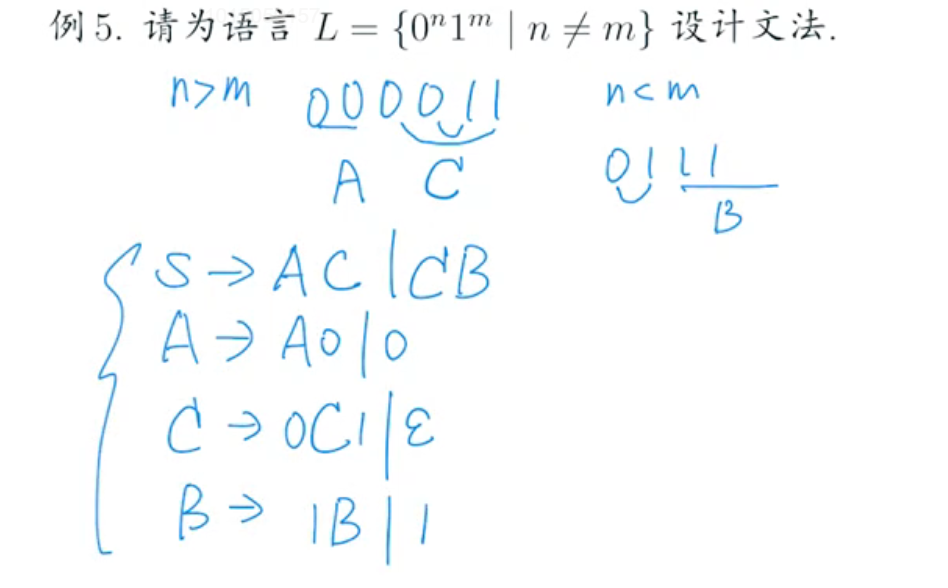 例 5. 请为语言 L = {0ⁿ1ᵐ | n ≠ m} 设计文法.
n>m 000011 n<m
A C 0111
B
S → AC | CB
A → A0 | 0
C → 0C1 | ε
B → 1B | 1